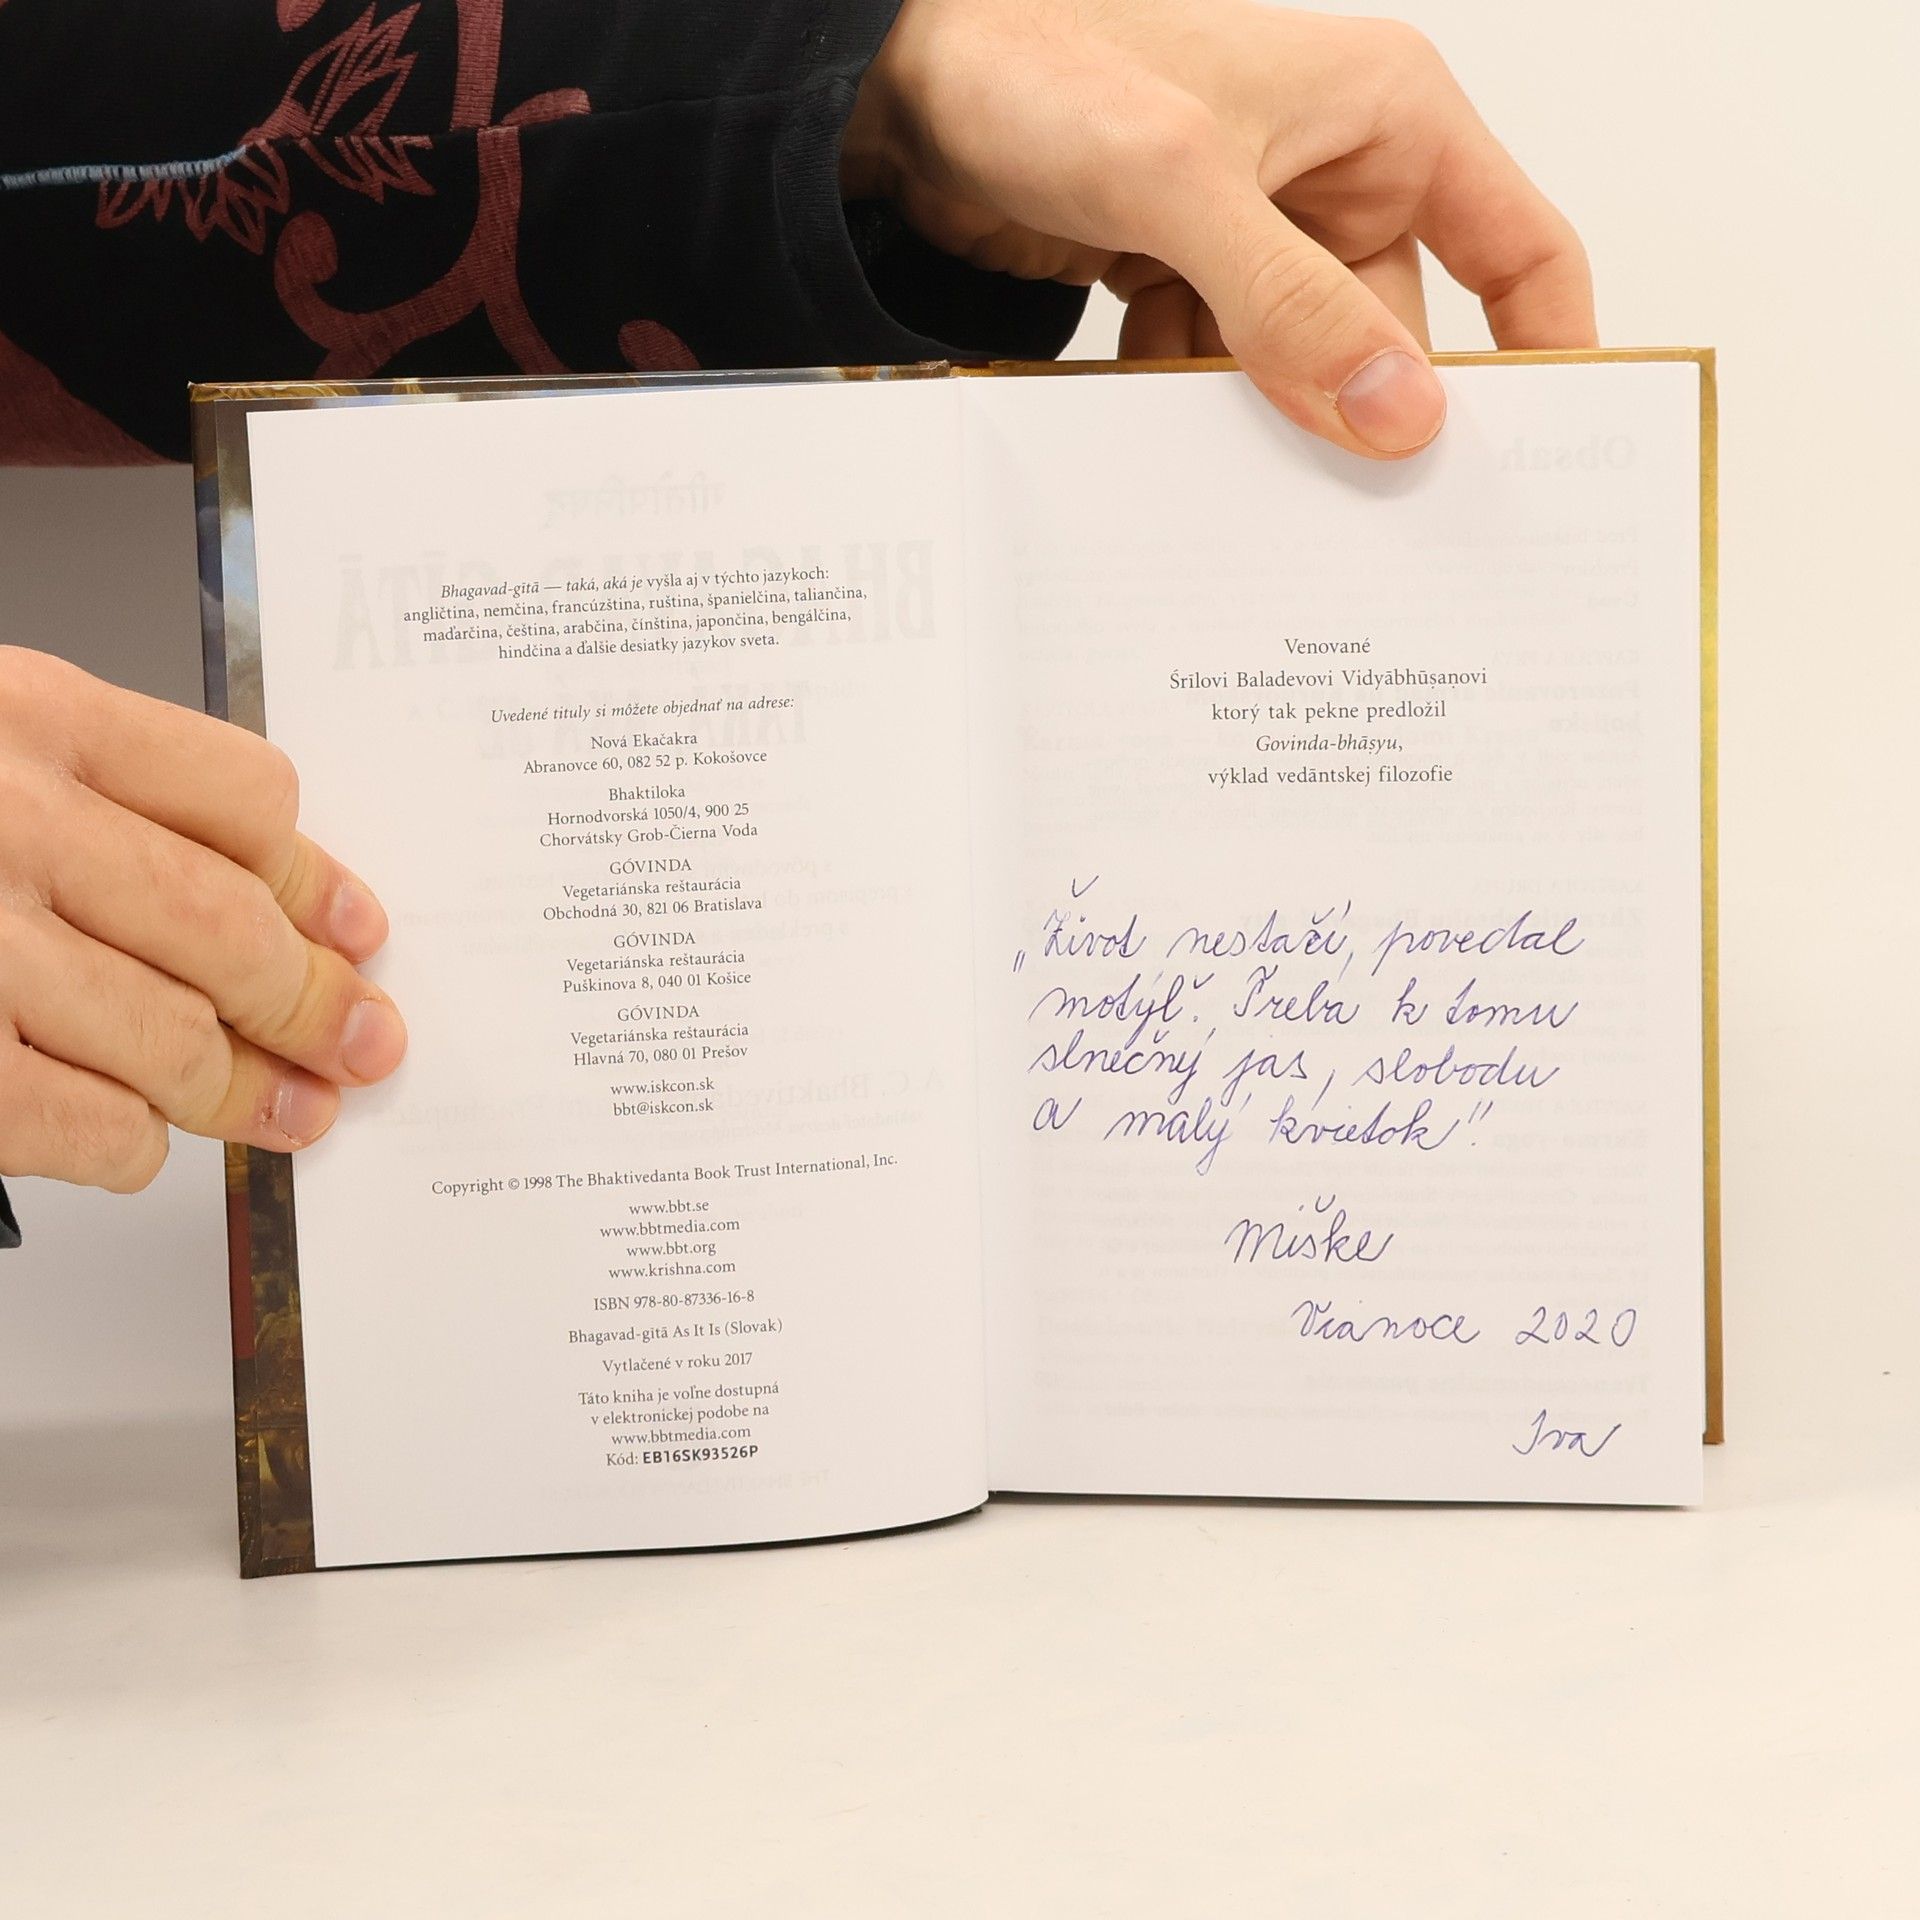 Bhagavad-gītā — taká, aká je vyšla aj v týchto jazykoch:
angličtina, nemčina, francúzština, ruština, španielčina, taliančina,
maďarčina, čeština, arabčina, čínština, japončina, bengálčina,
hindčina a ďalšie desiatky jazykov sveta.
Uvedené tituly si môžete objednať na adrese:
Nová Ekačakra
Abranovce 60, 082 52 p. Kokošovce
Bhaktiloka
Hornodvorská 1050/4, 900 25
Chorvátsky Grob-Čierna Voda
GÓVINDA
Vegetariánska reštaurácia
Obchodná 30, 821 06 Bratislava
GÓVINDA
Vegetariánska reštaurácia
Puškinova 8, 040 01 Košice
GÓVINDA
Vegetariánska reštaurácia
Hlavná 70, 080 01 Prešov
www.iskcon.sk
bbt@iskcon.sk
Copyright © 1998 The Bhaktivedanta Book Trust International, Inc.
www.bbt.se
www.bbtmedia.com
www.bbt.org
www.krishna.com
ISBN 978-80-87336-16-8
Bhagavad-gītā As It Is (Slovak)
Vytlačené v roku 2017
Táto kniha je voľne dostupná
v elektronickej podobe na
www.bbtmedia.com
Kód: EB16SK93526P
Venované
Śrīlovi Baladevovi Vidyābhūṣaṇovi
ktorý tak pekne predložil
Govinda-bhāṣyu,
výklad vedāntskej filozofie
„Život nestačí, povedal
motýľ. Treba k tomu
slnečný jas, slobodu
a malý kvietok".
Miške
Vianoce 2020
Iva